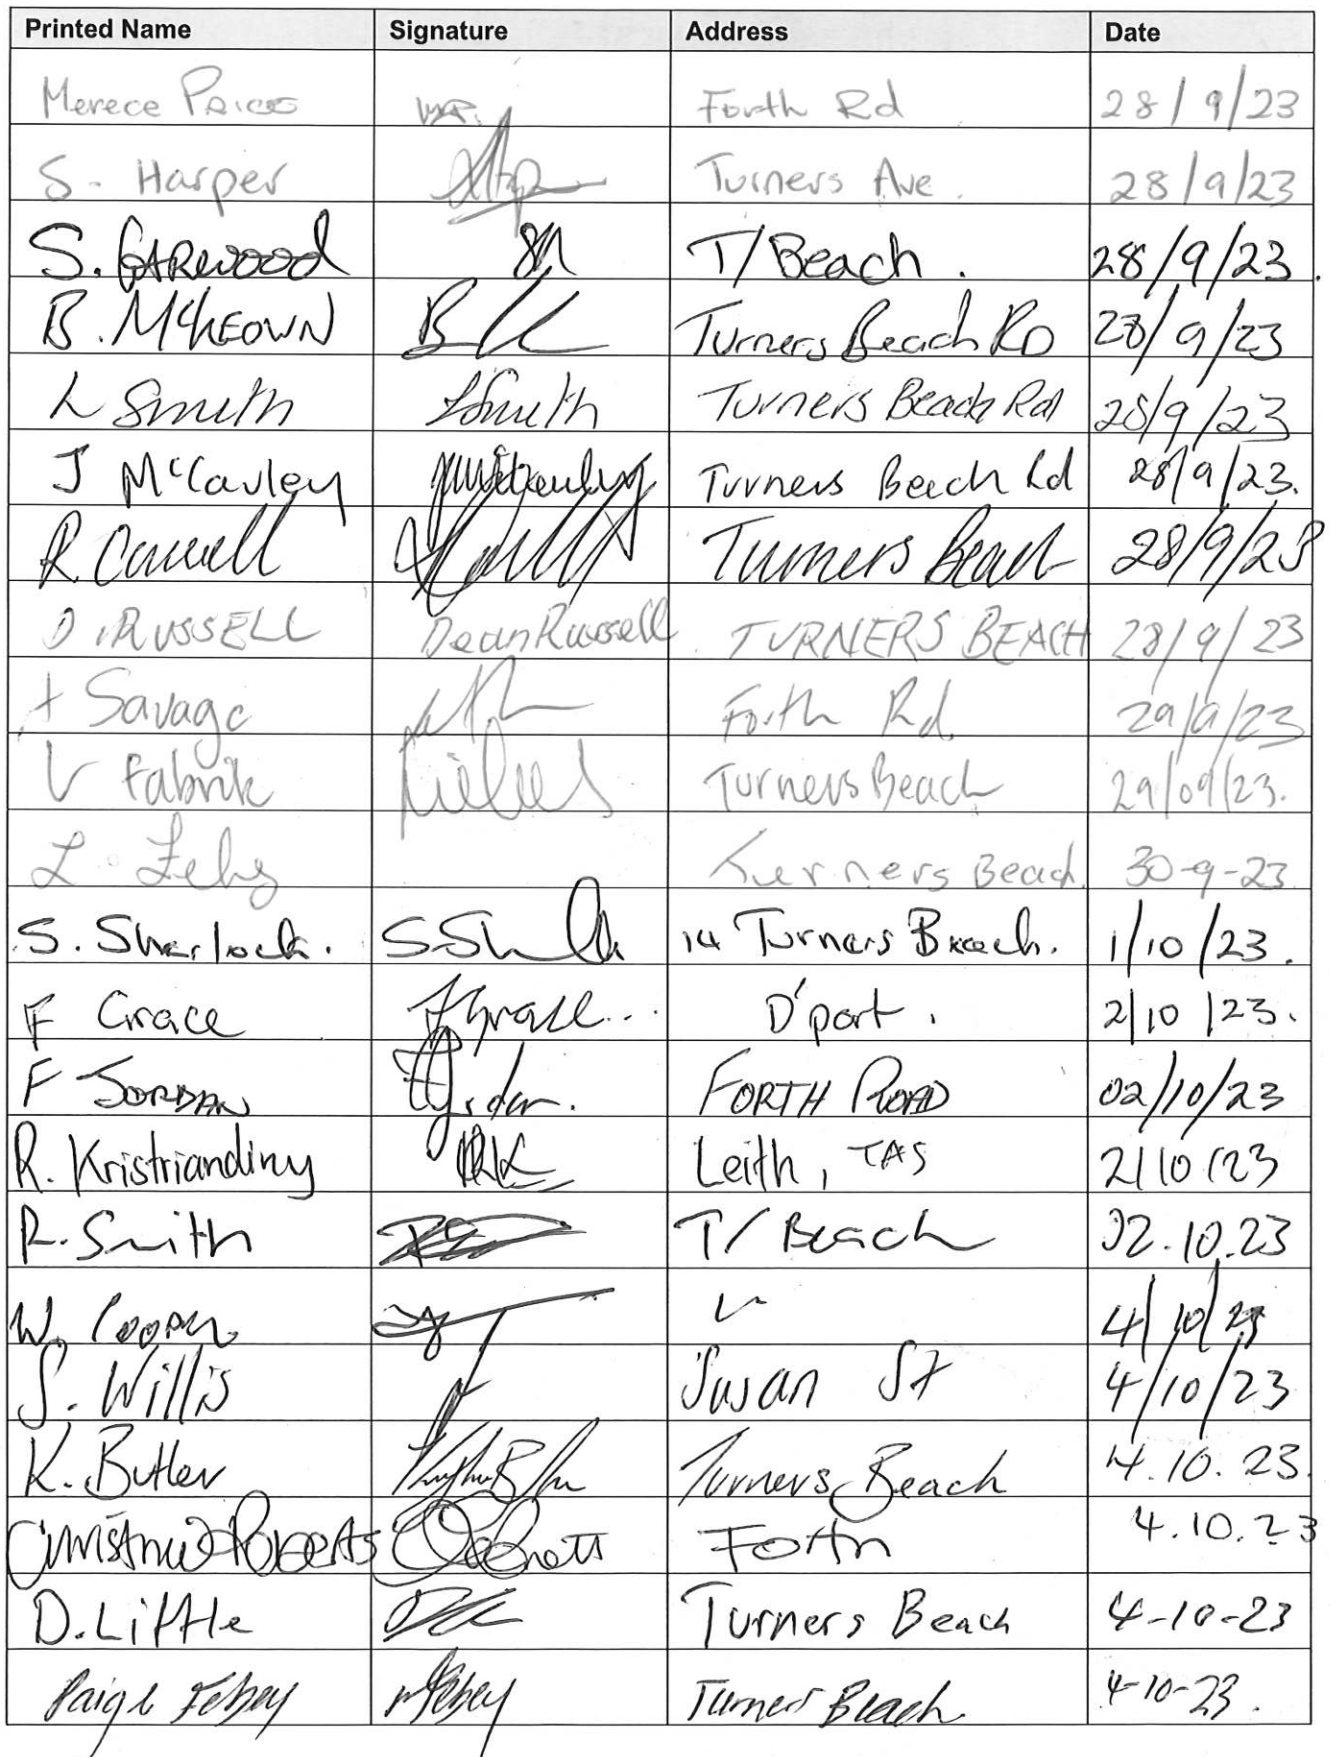 Printed Name Signature Address Date
Merece Price Forth Rd 28/9/23
S. Harper Turners Ave. 28/9/23
S. GARWOOD T/Beach. 28/9/23.
B. McKEOWN Turners Beach RD 28/9/23
L Smith LSmith Turners Beach Rd 28/9/23
J McCauley Turners Beach Rd 28/9/23.
R. Turners Beach 28/9/23
D. RUSSELL Dean Russell TURNERS BEACH 28/9/23
Savage Forth Rd. 29/9/23
V Fabrik Turners Beach 29/09/23.
L. Turners Beach 30-9-23
S. Sherlock. 14 Turners Beach. 1/10/23.
F Grace FGrace... D'port. 2/10/23.
F JORDAN FJordan. FORTH ROAD 02/10/23
R. Kristriandiny RK Leith, TAS 2/10/23
R. Smith T/Beach 02.10.23
W. Cooper 4/10/23
S. Willis Susan St 4/10/23
K. Butler Turners Beach 4.10.23.
Christine Roberts Forth 4.10.23
D. Little Turners Beach 4-10-23
Paige Febey Febey Turners Beach. 4-10-23.